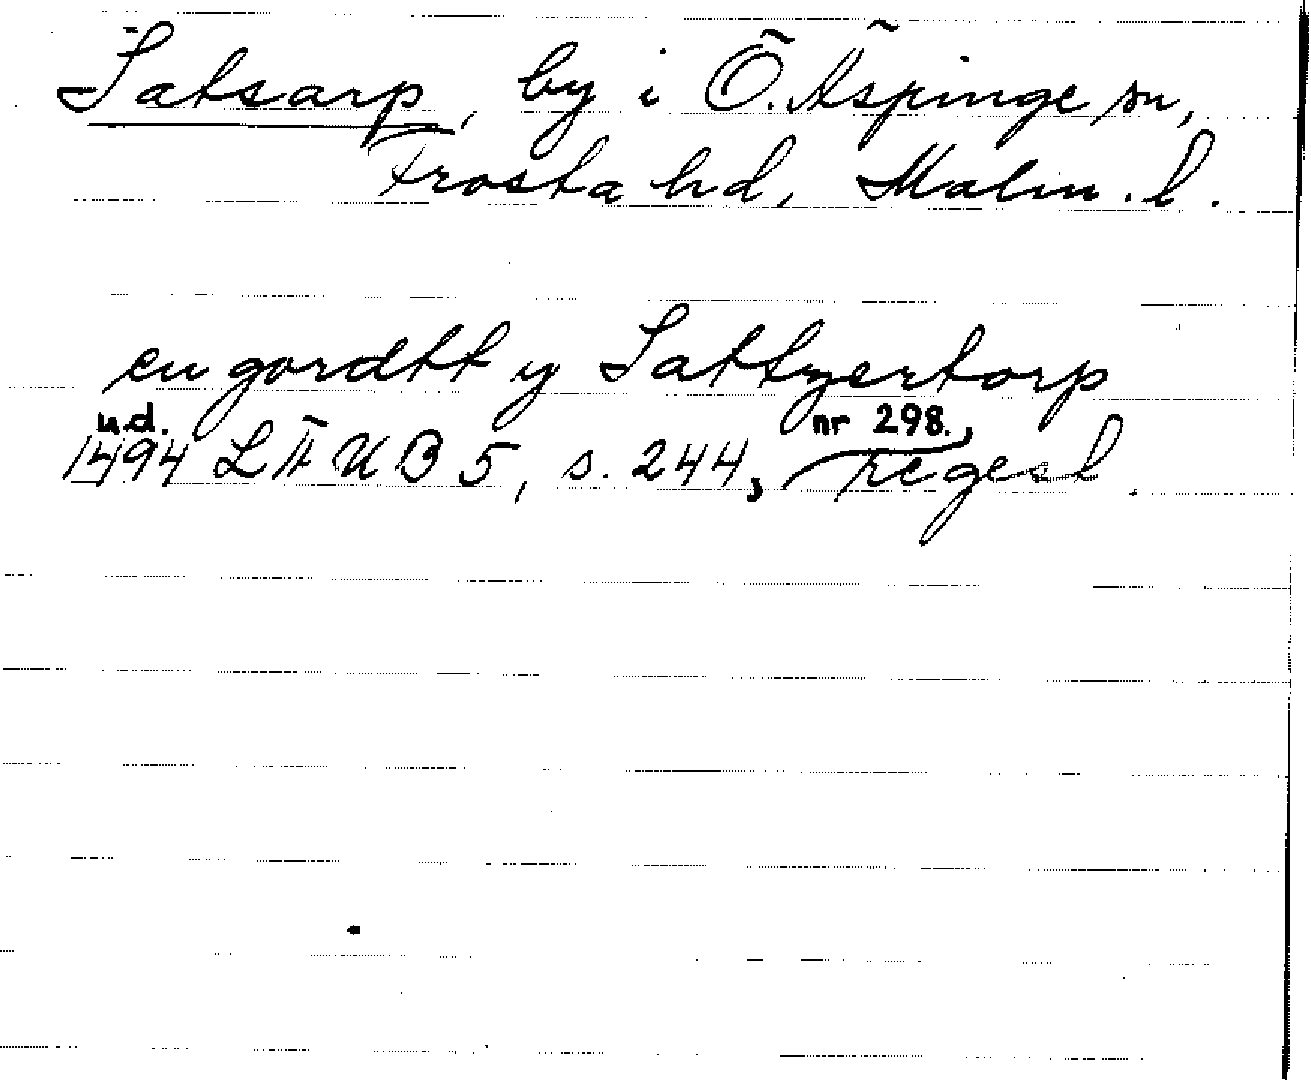 Satsarp, by i Ö. Äspinge sn,
Frosta hd, Malm. l.
en gordtt y Sattzertorp
u.d. nr 298.,
1494 LÄUB 5, s. 244, regest.